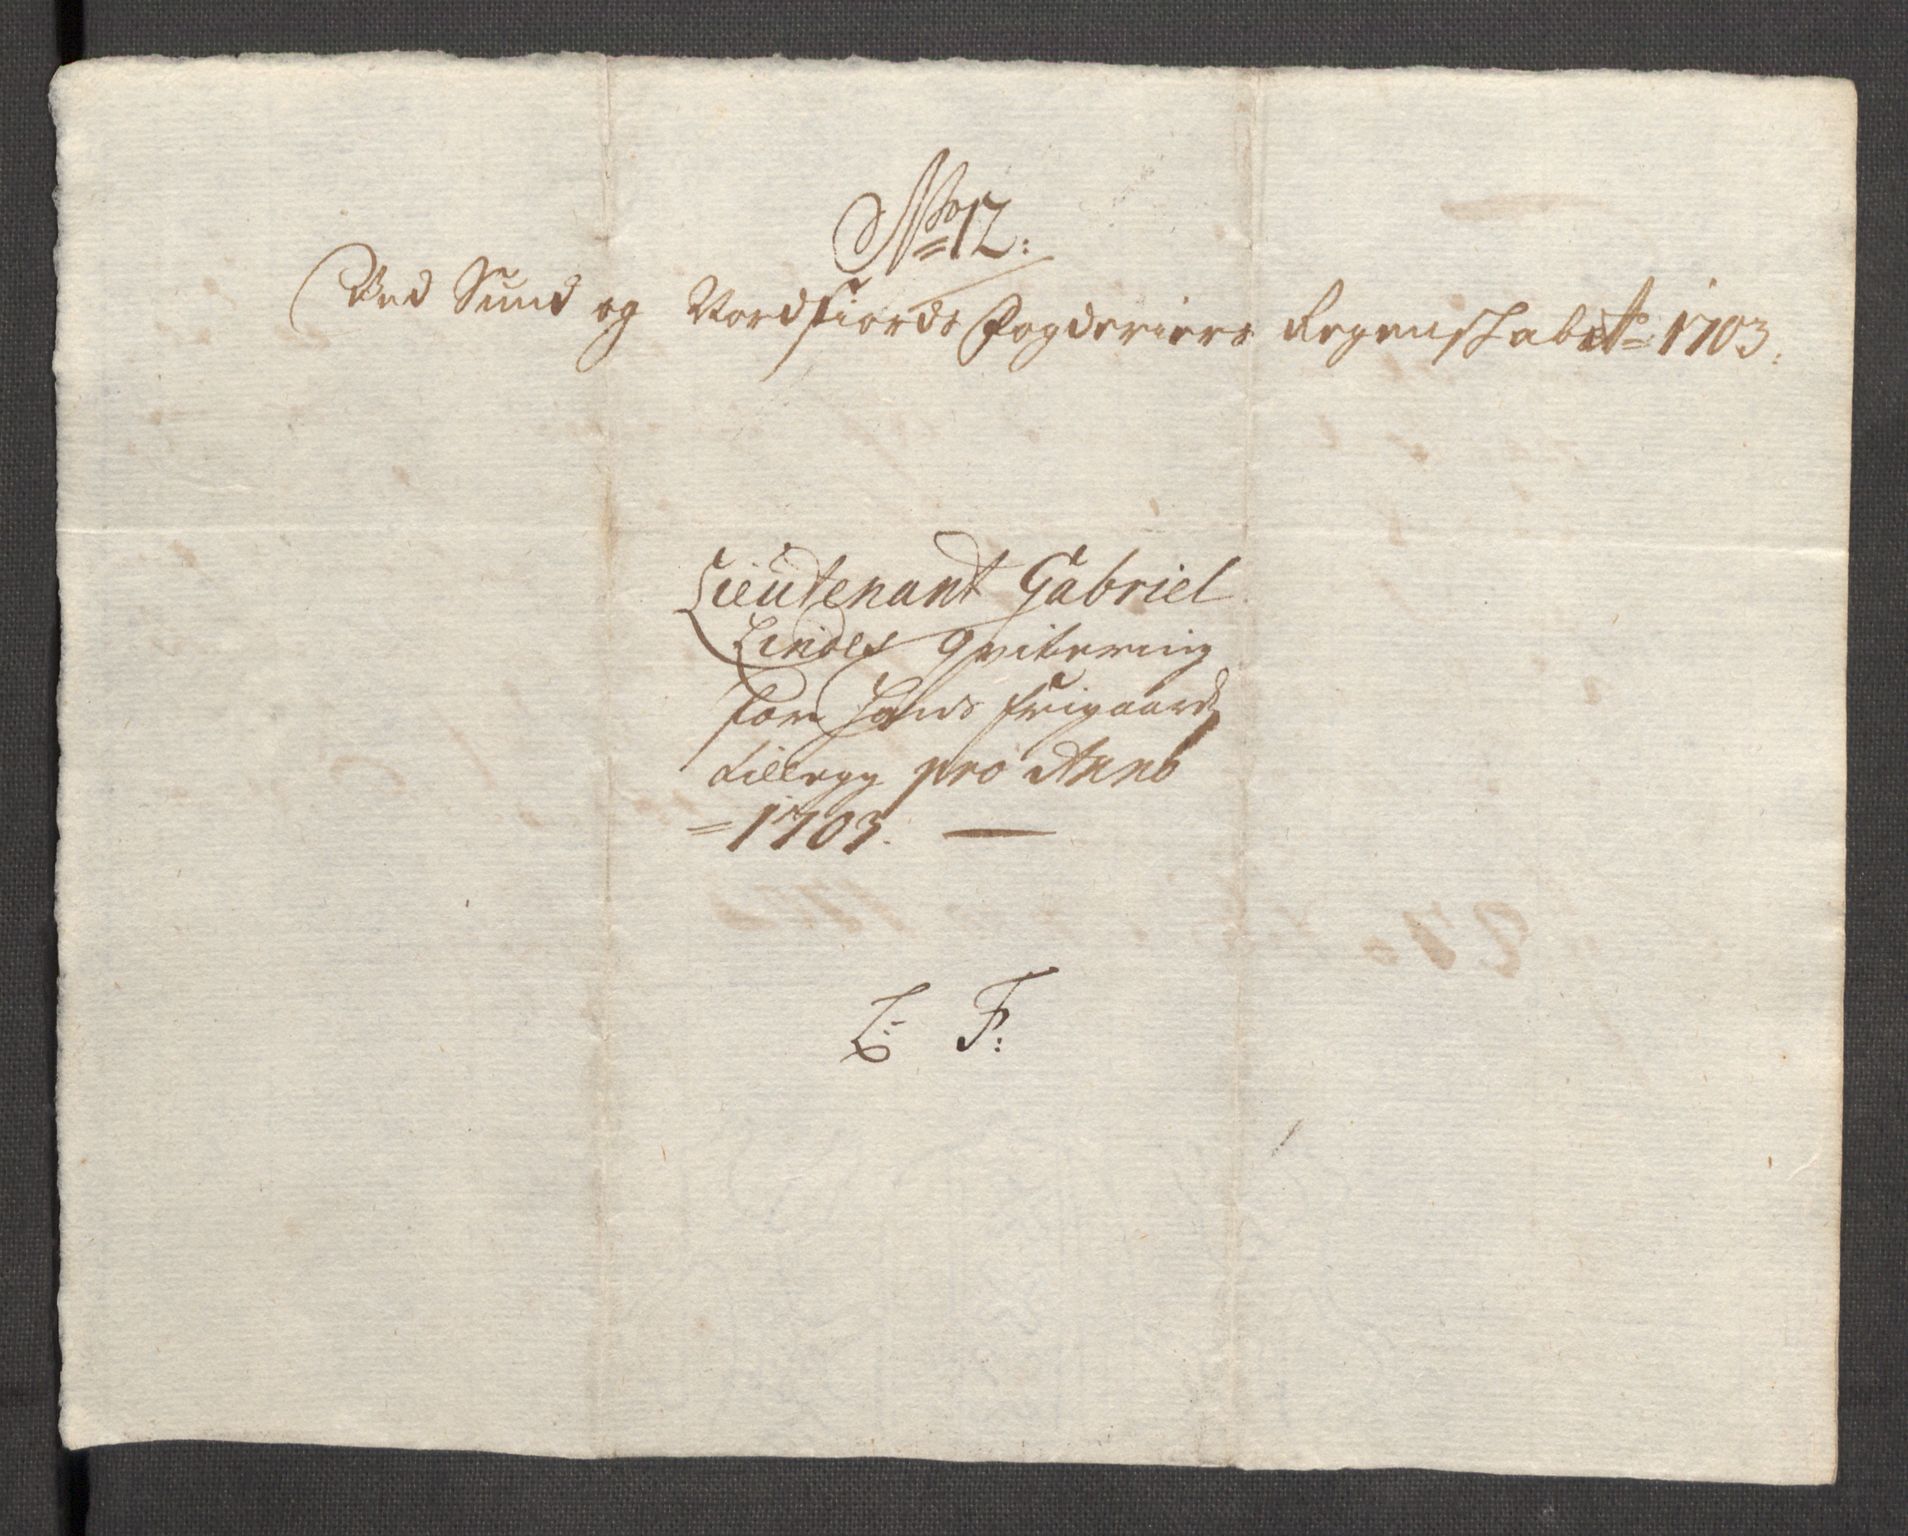 No 12:
Ved Sund og Nordfiords Fogderiers Regenskab Ao 1703.
Lieutenant Gabriel
Lindes Qvitering
for hans frigaards
tillegg pro Anno
1703.
L: F: